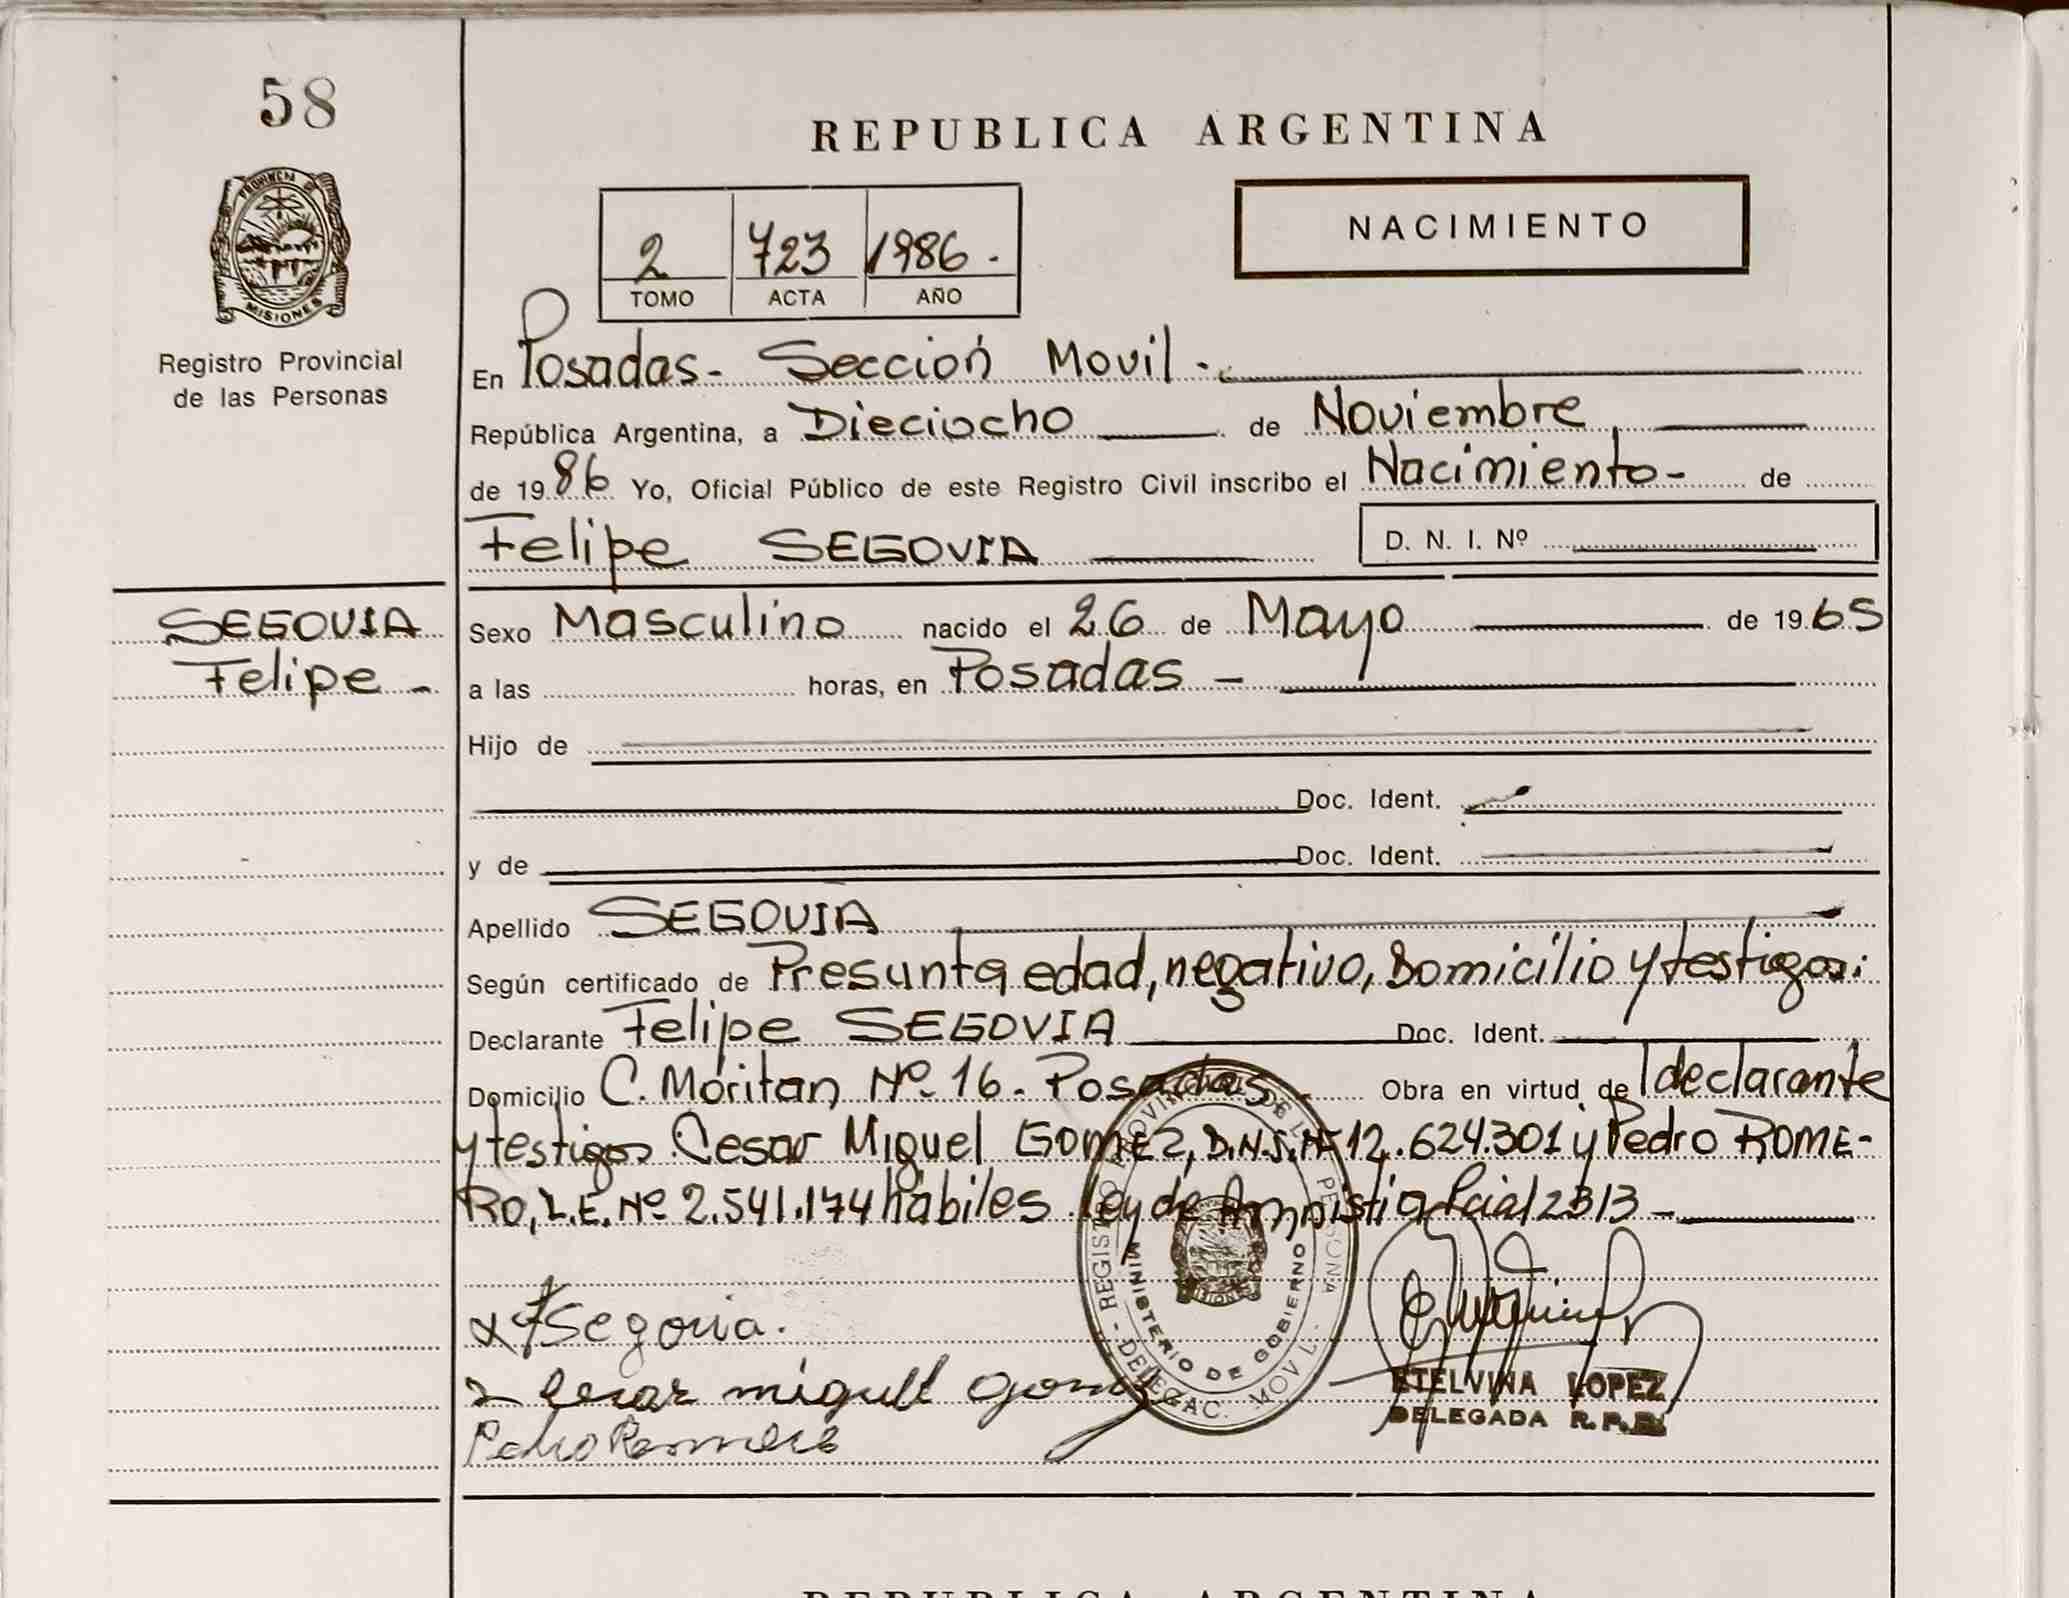 58
PROVINCIA D
MISIONES
Registro Provincial
de las Personas
REPUBLICA ARGENTINA
2 723 1986.
TOMO ACTA AÑO
NACIMIENTO
En Posadas- Sección Movil.
República Argentina, a Dieciocho de Noviembre
de 1986 Yo, Oficial Público de este Registro Civil inscribo el Nacimiento- de
Felipe SEGOVIA D. N. I. Nº
SEGOVIA
Felipe -
Sexo Masculino nacido el 26 de Mayo de 1965
a las horas, en Posadas -
Hijo de
Doc. Ident.
y de Doc. Ident.
Apellido SEGOVIA
Según certificado de Presunta edad, negativo, Domicilio y testigos:
Declarante Felipe SEGOVIA Doc. Ident.
Domicilio C. Moritan Nº 16. Posadas. Obra en virtud de declarante
y testigos Cesar Miguel GOMEZ, D.N.I. Nº 12.624.301 y Pedro ROME-
RO, L.E. Nº 2.541.174 hábiles Ley de Amnistia Pcial 2313 -
x FSegovia.
Cesar miguel Gomez
Pedro Romero
REGISTRO PROVINCIAL DE LAS PERSONA
MINISTERIO DE GOBIERNO
- DELEGAC. MOVIL.
ETELVINA LOPEZ
DELEGADA R.P.P.
REPUBLICA ARGENTINA